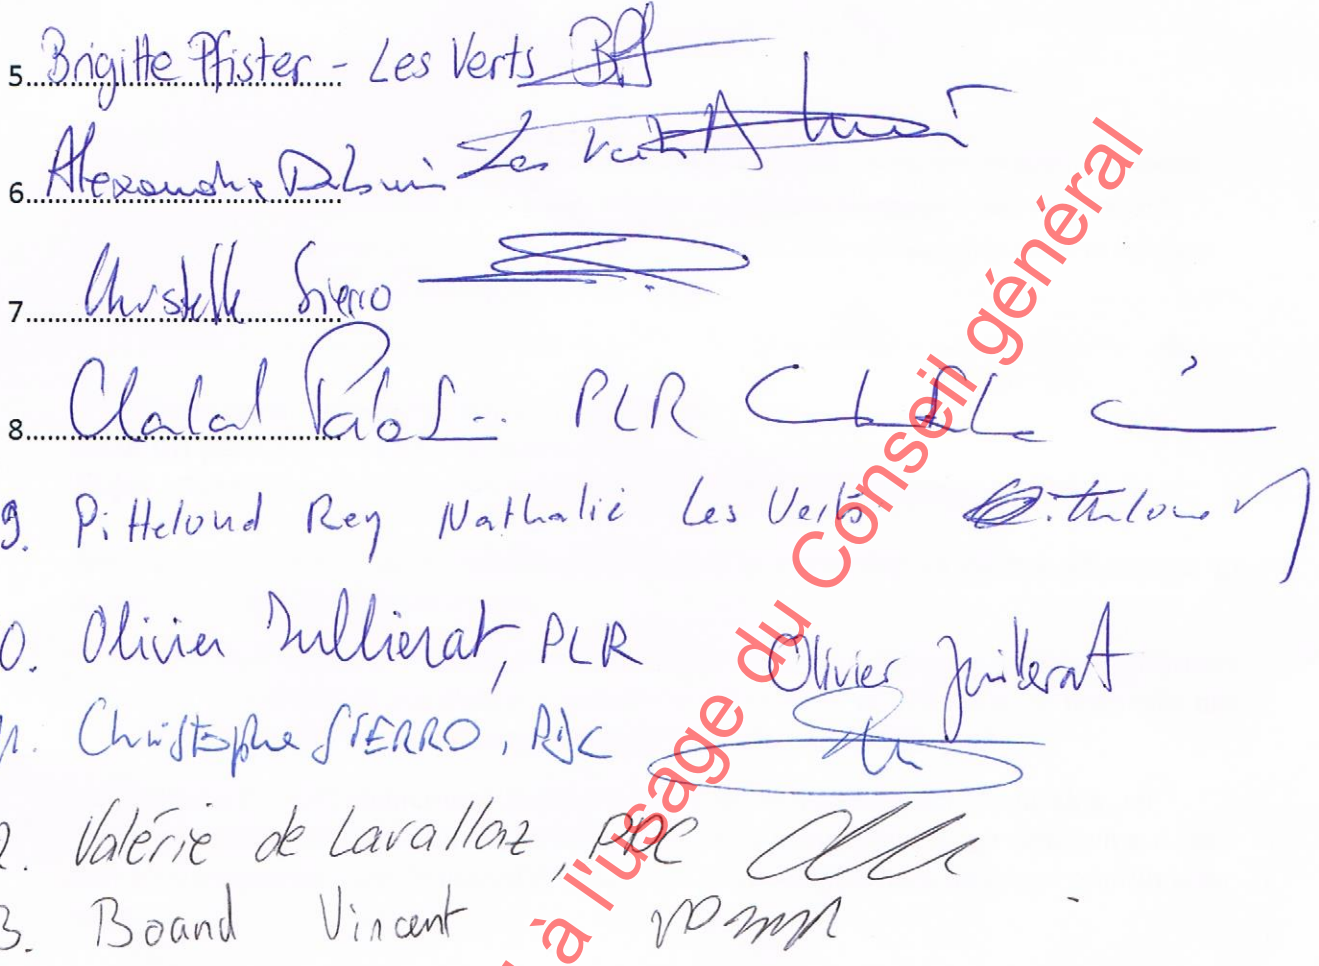 5. Brigitte Pfister - Les Verts
6. Alexandre Les Verts
7. Christelle Sierro
8. PLR
9. Pitteloud Rey Nathalie Les Verts
0. Olivier Jullierat, PLR Olivier Juillerat
Christophe SIERRO, PDC
2. Valérie de Lavallaz, PDC
3. Boand Vincent
à l'usage du Conseil général